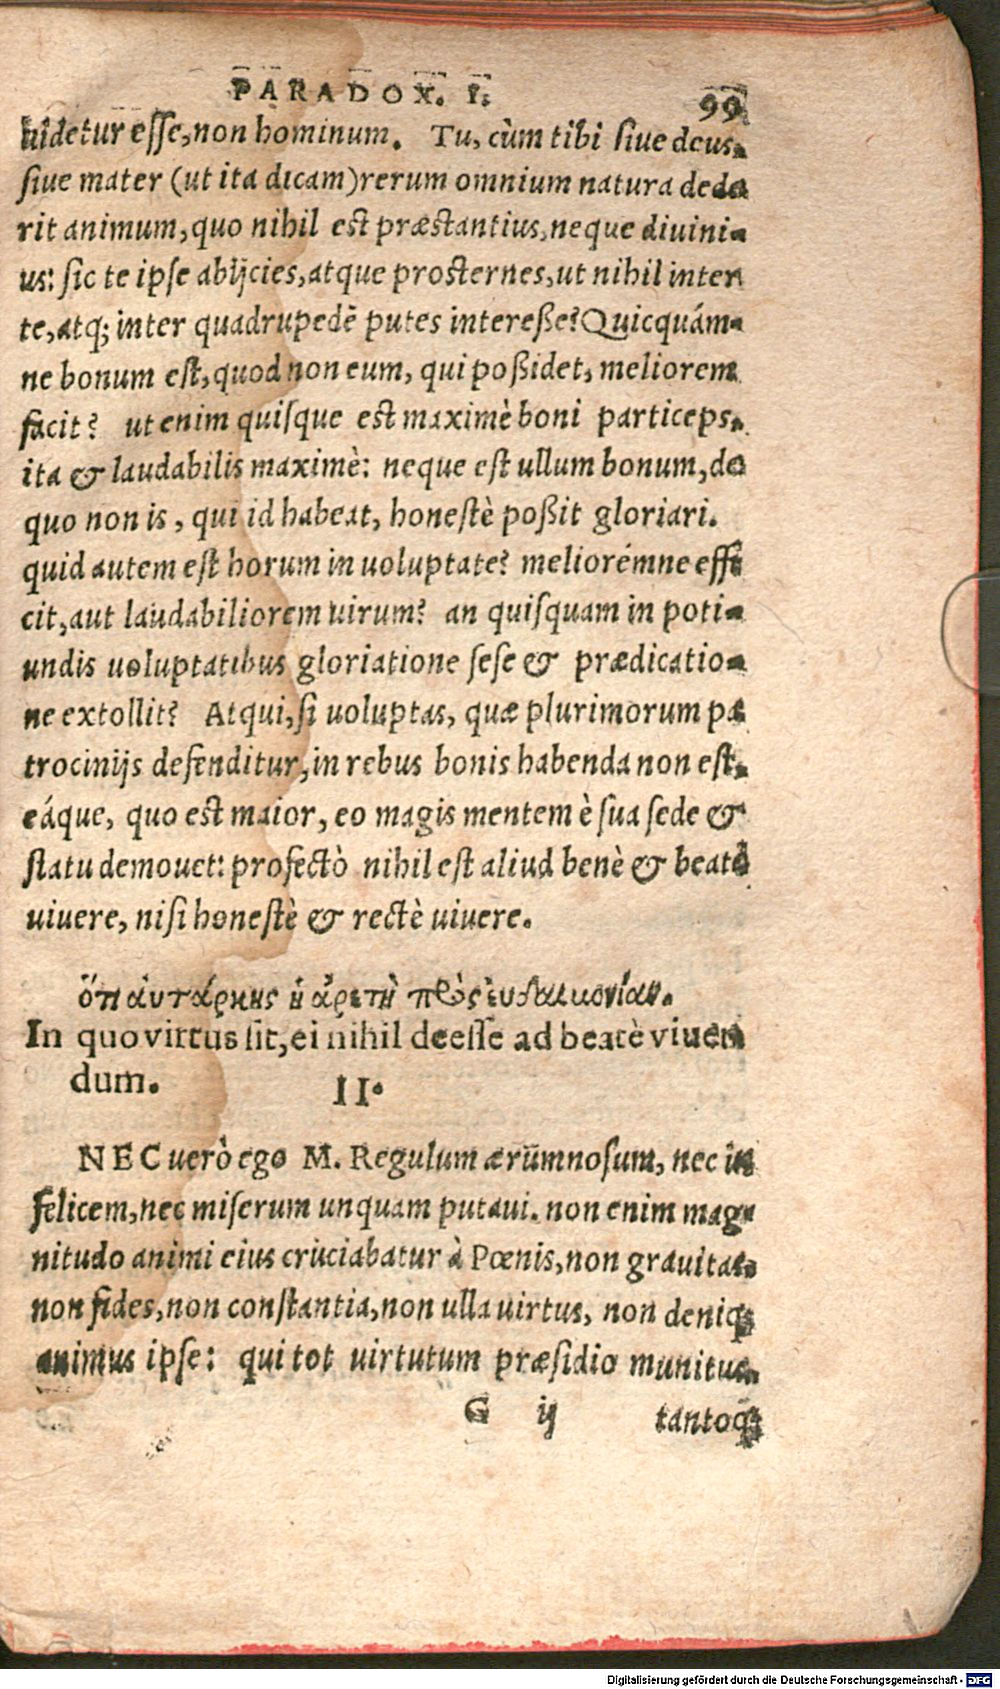 PARADOX. I. 99
uidetur esse, non hominum. Tu, cùm tibi siue deus,
siue mater (ut ita dicam) rerum omnium natura dede
rit animum, quo nihil est præstantius, neque diuini-
us: sic te ipse abijcies, atque prosternes, ut nihil inter
te, atq; inter quadrupedē putes interesse? Quicquám-
ne bonum est, quod non eum, qui possidet, meliorem
facit? ut enim quisque est maximè boni particeps,
ita & laudabilis maximè: neque est ullum bonum, de
quo non is, qui id habeat, honestè possit gloriari.
quid autem est horum in uoluptate? meliorémne effi
cit, aut laudabiliorem uirum? an quisquam in poti-
undis uoluptatibus gloriatione sese & prædicatio-
ne extollit? Atqui, si uoluptas, quæ plurimorum pa
trocinijs defenditur, in rebus bonis habenda non est,
eáque, quo est maior, eo magis mentem è sua sede &
statu demouet: profectò nihil est aliud benè & beatè
uiuere, nisi honestè & rectè uiuere.
ὅτι αὐτάρκης ἡ ἀρετὴ πρὸς εὐδαιμονίαν.
In quo virtus sit, ei nihil deesse ad beatè viuen
dum.
II.
NEC uerò ego M. Regulum ærumnosum, nec in
felicem, nec miserum unquam putaui. non enim mag-
nitudo animi eius cruciabatur à Pœnis, non grauitas,
non fides, non constantia, non ulla uirtus, non deniq;
animus ipse: qui tot uirtutum præsidio munitus,
G ij tantoq;
Digitalisierung gefördert durch die Deutsche Forschungsgemeinschaft - DFG